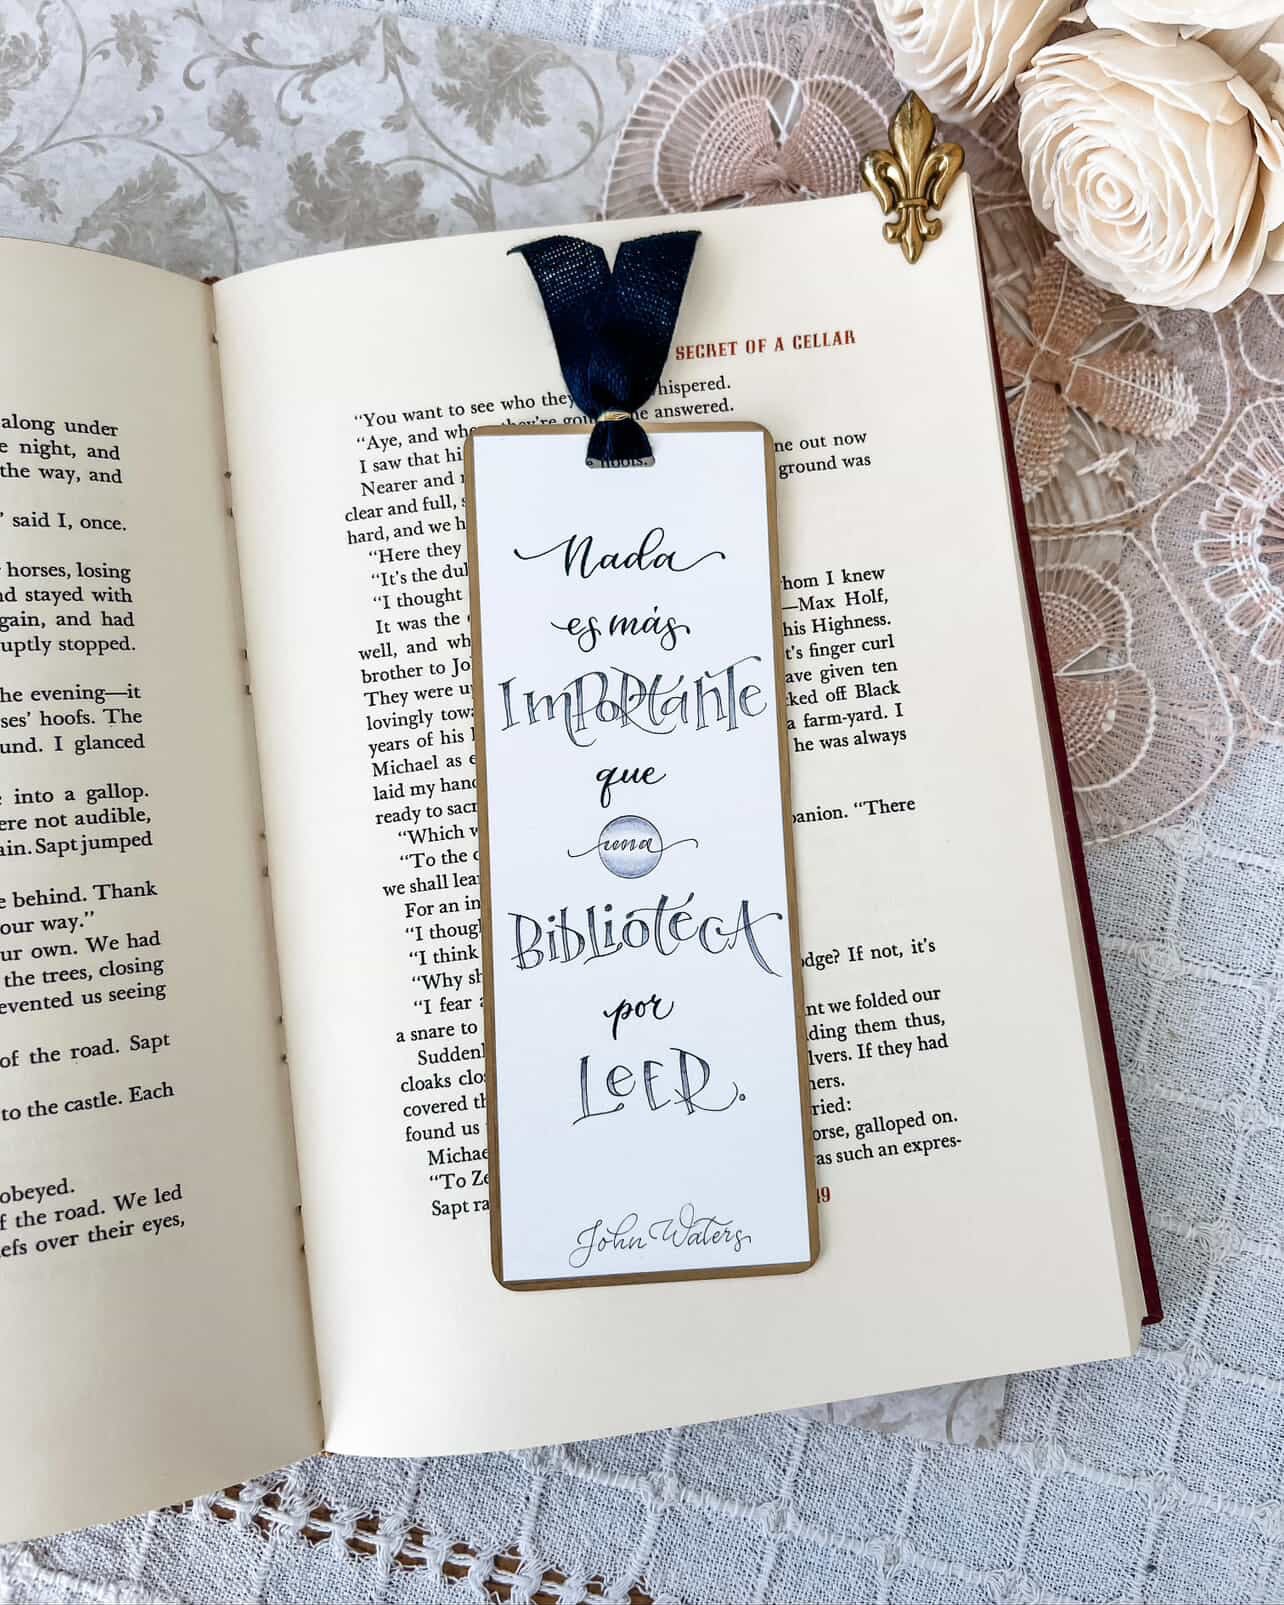 along under
night, and
the way, and
said I, once.
horses, losing
stayed with
and had
stopped.
evening—it
hoofs. The
I glanced
into a gallop.
not audible,
Sapt jumped
behind. Thank
our way.”
own. We had
the trees, closing
us seeing
of the road. Sapt
to the castle. Each
obeyed.
the road. We led
over their eyes,
SECRET OF A CELLAR
“You want to see who they whispered.
“Aye, and they're answered.
I saw that out now
Nearer and ground was
clear and full,
hard, and we
“Here they
“It's the
“I thought I knew
It was the —Max Holf,
well, and his Highness.
brother to finger curl
They were given ten
lovingly off Black
years of his a farm-yard. I
Michael as he was always
laid my
ready to
“Which “There
“To the
we shall
For an
“I
“I think If not, it's
“Why
“I fear we folded our
a snare to them thus,
If they had
cloaks
covered
found us galloped on.
was such an expres-
“To
Sapt
Nada
es más
IMPORTANTE
que
una
BIBLIOTECA
por
LEER.
John Waters